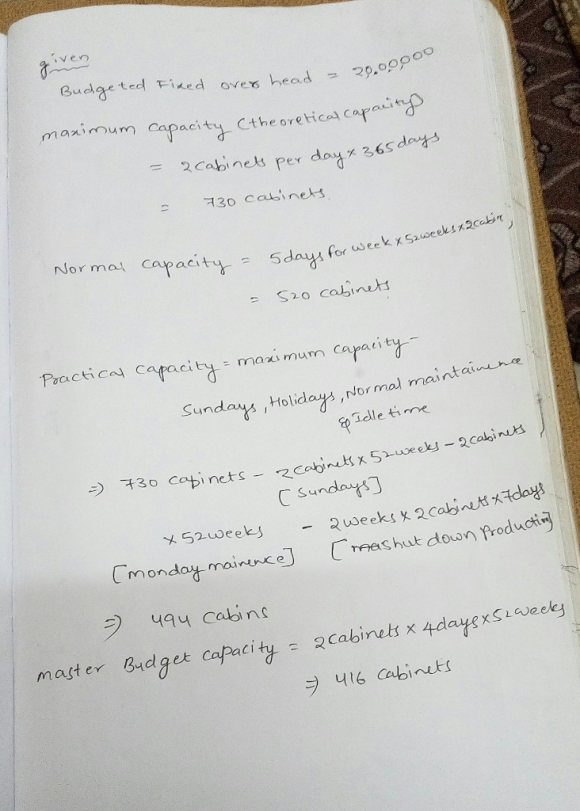 given
Budgeted Fixed over head = 20,00,000
maximum capacity (theoretical capacity)
= 2 cabinets per day x 365 days
= 730 cabinets
Normal capacity = 5 days for week x 52 weeks x 2 cabin,
= 520 cabinets
Practical capacity = maximum capacity -
Sundays, Holidays, Normal maintainence
& Idle time
⇒ 730 cabinets - 2 cabinets x 52 weeks - 2 cabinets
[Sundays]
x 52 weeks - 2 weeks x 2 cabinets x 7 days
[monday mainence] [shut down Production]
⇒ 494 cabins
master Budget capacity = 2 cabinets x 4 days x 52 weeks
⇒ 416 cabinets